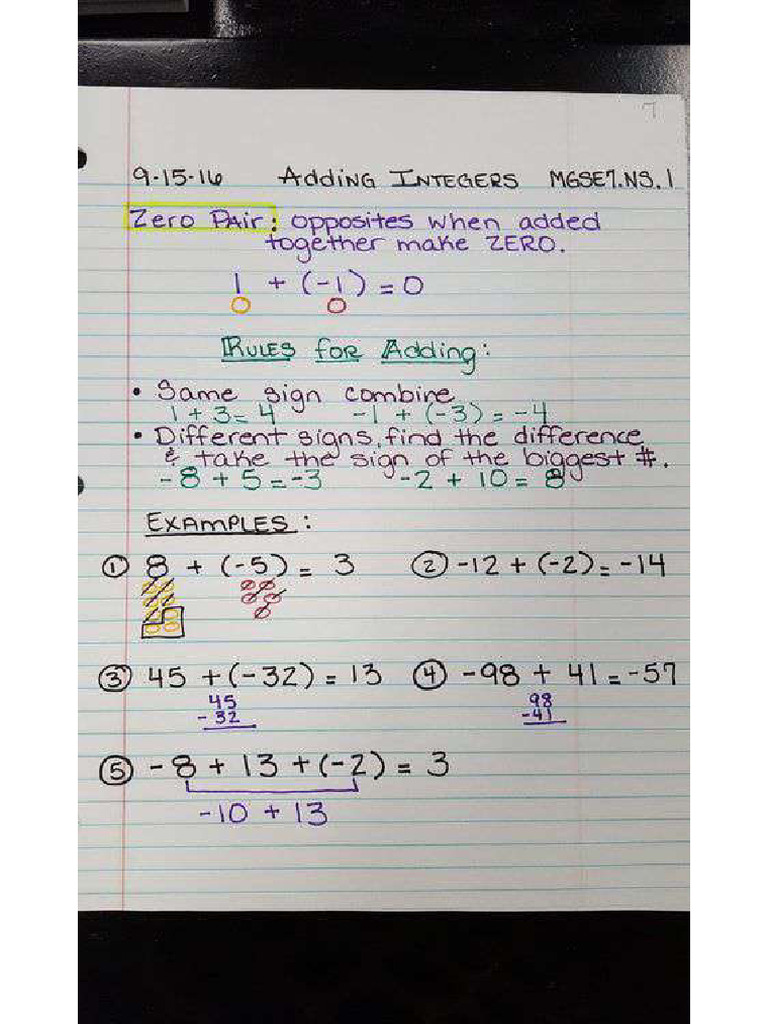 7
9-15-16 Adding Integers MGSE7.NS.1
Zero Pair: opposites when added
together make ZERO.
1 + (-1) = 0
Rules for Adding:
• Same sign combine
1 + 3 = 4 -1 + (-3) = -4
• Different signs, find the difference
& take the sign of the biggest #.
-8 + 5 = -3 -2 + 10 = 8
Examples:
① 8 + (-5) = 3 ② -12 + (-2) = -14
③ 45 + (-32) = 13 ④ -98 + 41 = -57
45 98
- 32 -41
⑤ -8 + 13 + (-2) = 3
-10 + 13